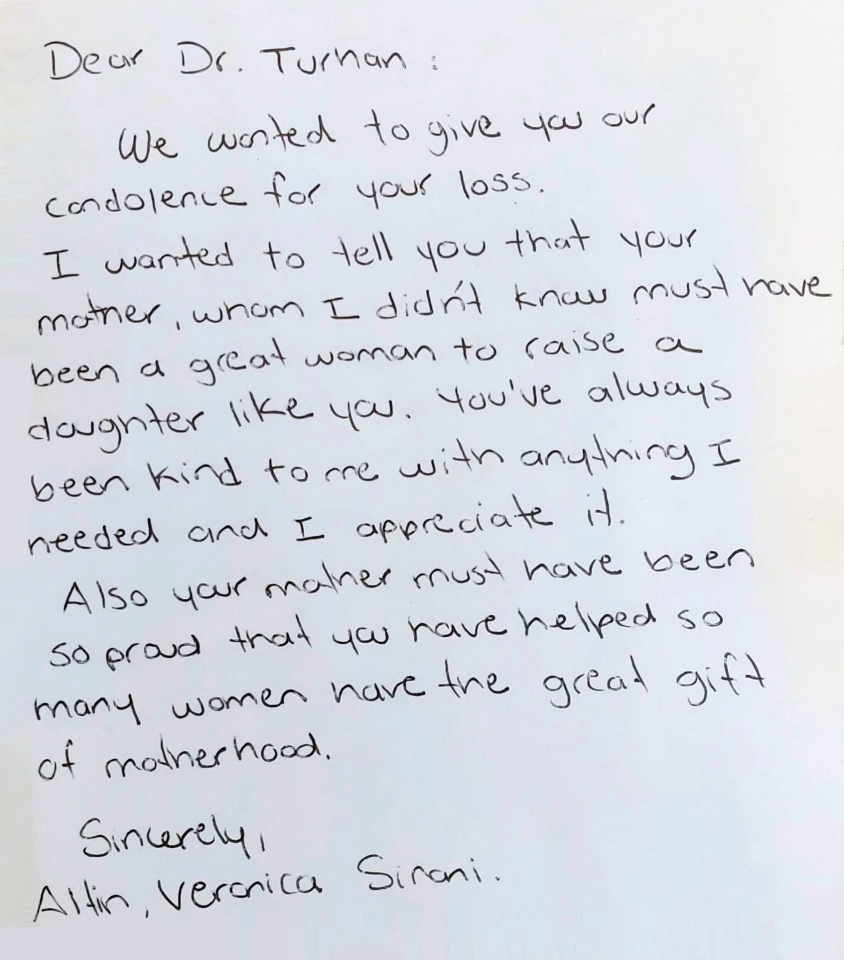 Dear Dr. Turhan :
We wanted to give you our
condolence for your loss.
I wanted to tell you that your
mother, whom I didn't know must have
been a great woman to raise a
daughter like you. You've always
been kind to me with anything I
needed and I appreciate it.
Also your mother must have been
so proud that you have helped so
many women have the great gift
of motherhood.
Sincerely,
Altin, Veronica Sinani.